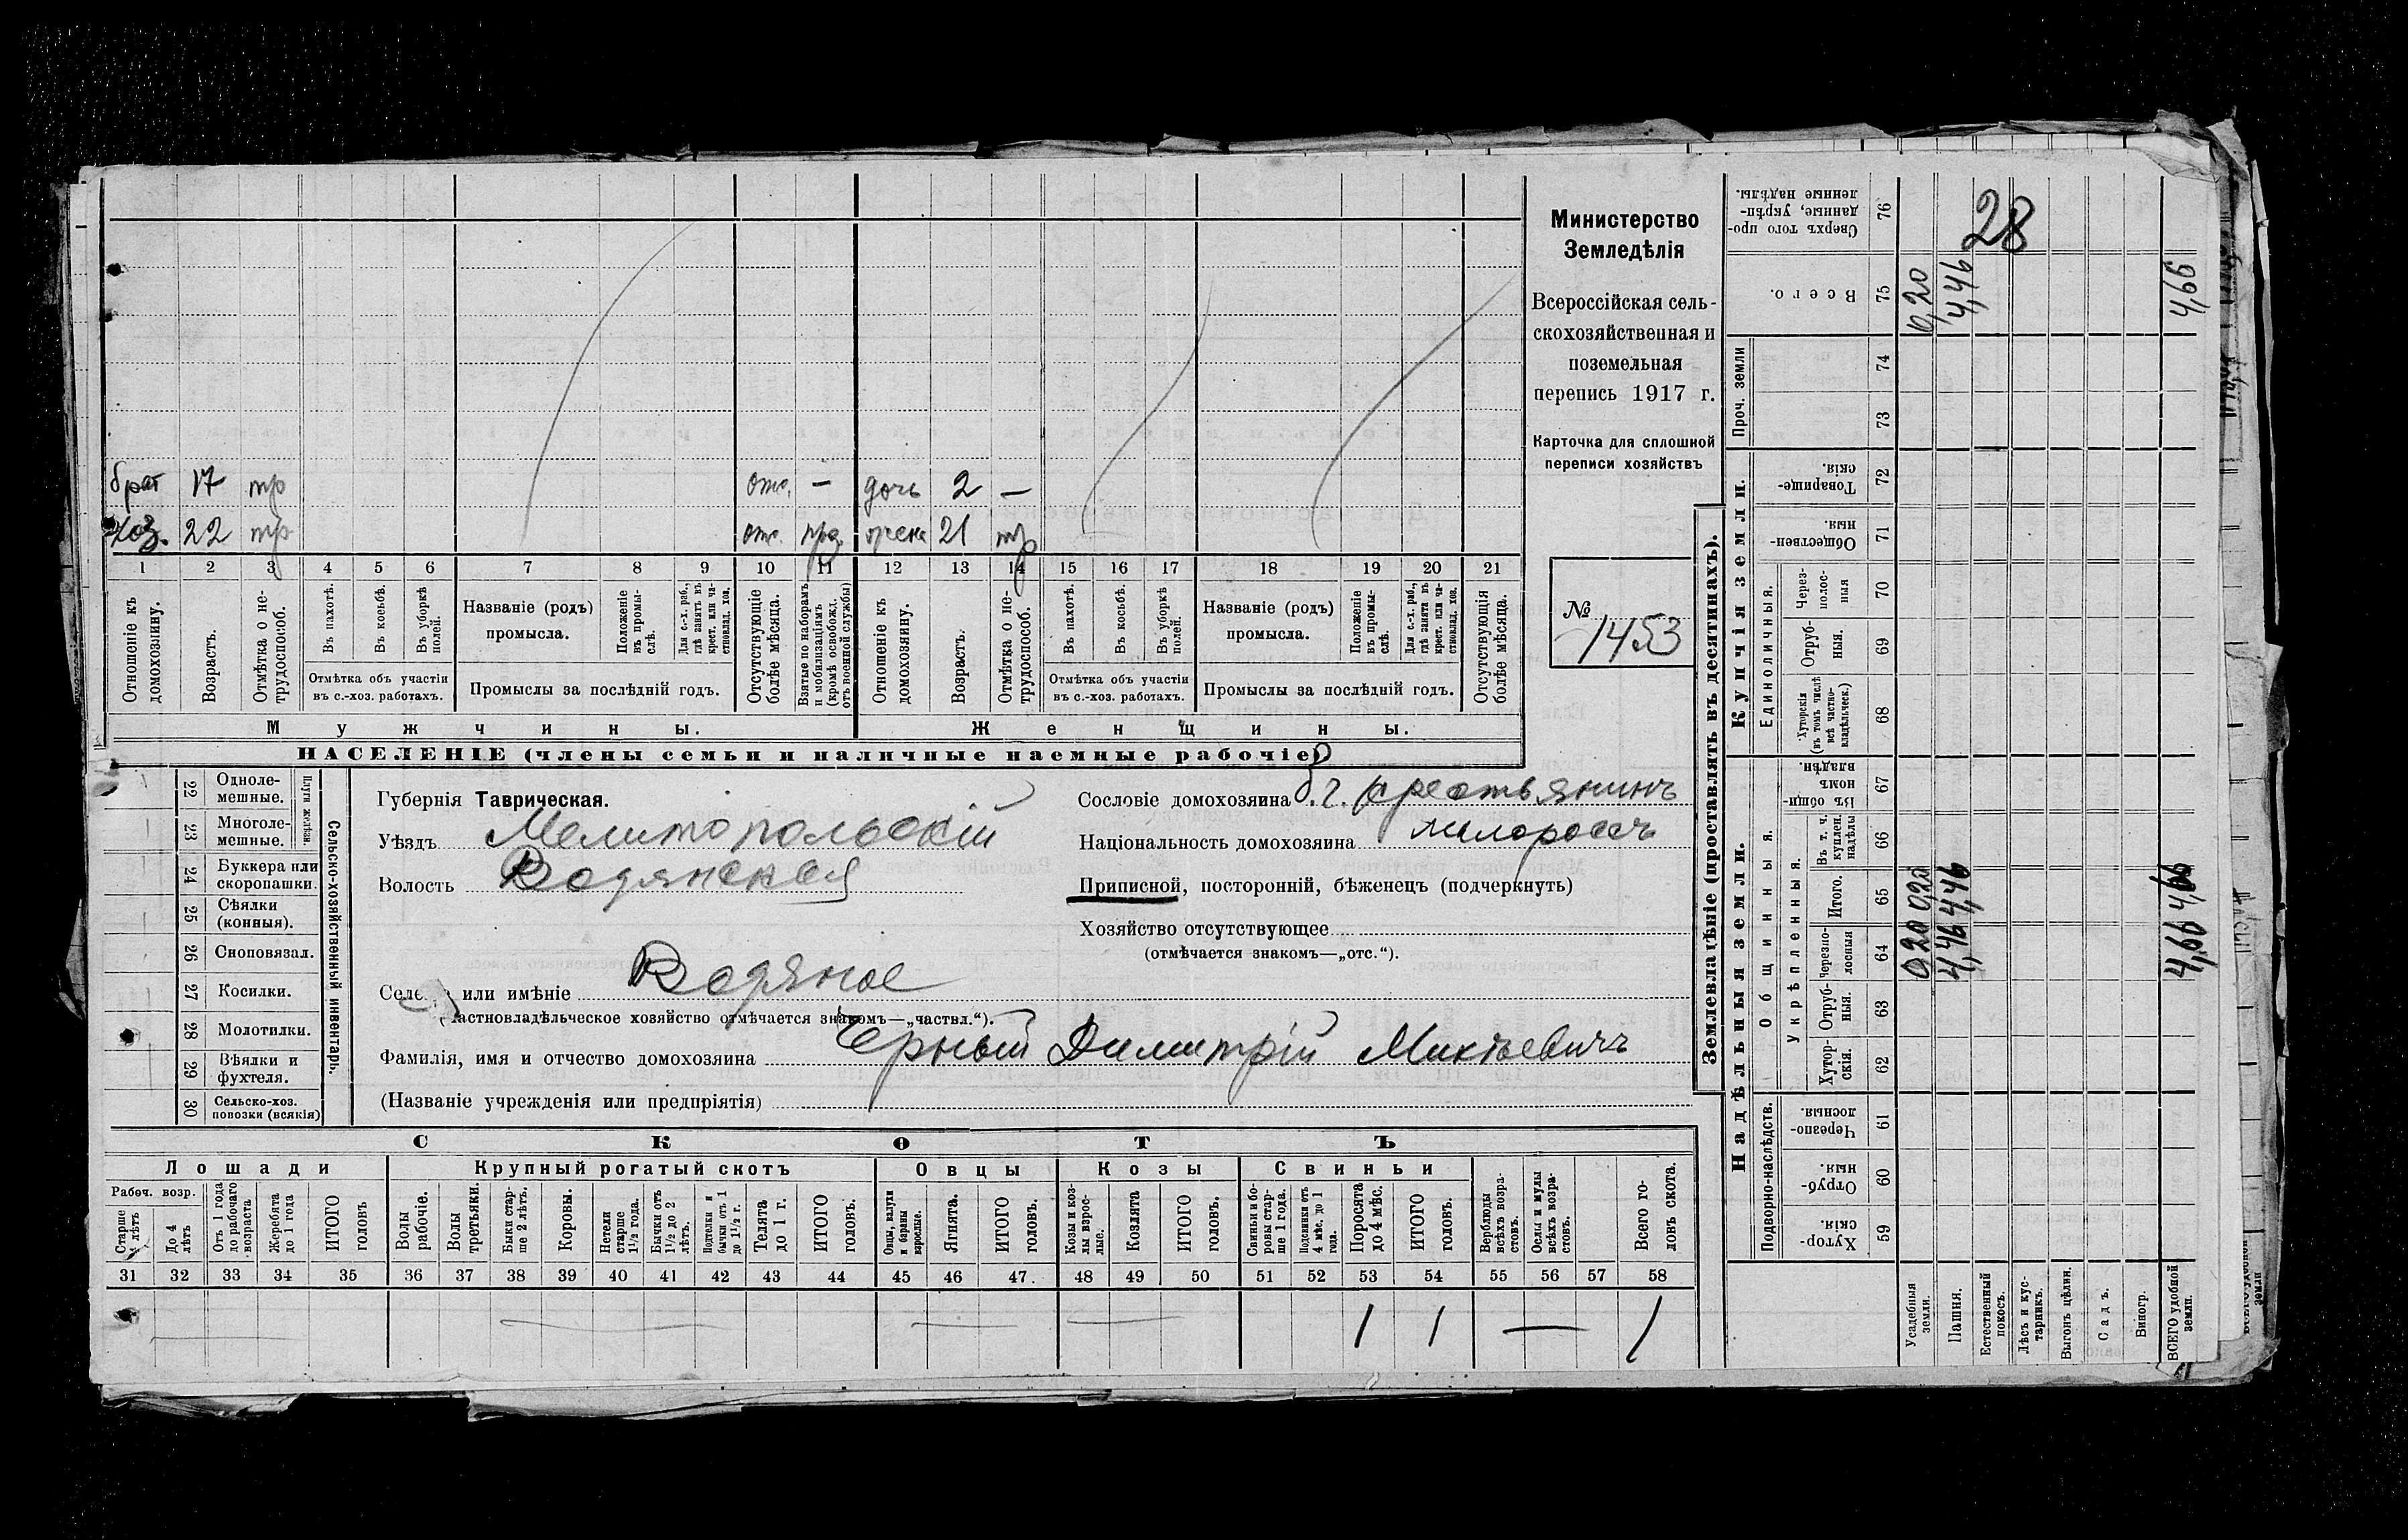 брат 17 тр отс. — дочь 2 —
хоз. 22 тр отс. жена 21 тр
1 2 3 4 5 6 7 8 9 10 11 12 13 14 15 16 17 18 19 20 21
Отношеніе къ домохозяину.
Возрастъ.
Отмѣтка о нетрудоспособ.
Въ пахотѣ.
Въ косьбѣ.
Въ уборкѣ полей.
Отмѣтка объ участіи
въ с.-хоз. работахъ.
Названіе (родъ)
промысла.
Положеніе въ промыслѣ.
Для с.-х. раб., гдѣ занятъ въ крест. или частновлад. хоз.
Промыслы за послѣдній годъ.
Отсутствующіе болѣе мѣсяца.
Взятые по наборамъ и мобилизаціямъ (кромѣ освобожд. отъ военной службы)
Отношеніе къ домохозяину.
Возрастъ.
Отмѣтка о нетрудоспособ.
Въ пахотѣ.
Въ косьбѣ.
Въ уборкѣ полей.
Отмѣтка объ участіи
въ с.-хоз. работахъ.
Названіе (родъ)
промысла.
Положеніе въ промыслѣ.
Для с.-х. раб., гдѣ занята въ крест. или частновлад. хоз.
Промыслы за послѣдній годъ.
Отсутствующія болѣе мѣсяца.
Мужчины.
Женщины.
НАСЕЛЕНІЕ (члены семьи и наличные наемные рабочіе)
Министерство
Земледѣлія
Всероссійская сель-
скохозяйственная и
поземельная
перепись 1917 г.
Карточка для сплошной
переписи хозяйствъ
№
1453
22 Одноле-
мешные.
23 Многоле-
мешные.
Плуги желѣзн.
24 Буккера или
скоропашки.
25 Сѣялки
(конныя).
26 Сноповязал.
27 Косилки.
28 Молотилки.
29 Вѣялки и
фухтеля.
30 Сельско-хоз.
повозки (всякія)
Сельско-хозяйственный инвентарь.
Губернія Таврическая.
Уѣздъ Мелитопольскій
Волость Водянская
Сословіе домохозяина б.г. крестьянинъ
Національность домохозяина малороссъ
Приписной, посторонній, бѣженецъ (подчеркнуть)
Хозяйство отсутствующее
(отмѣчается знакомъ—„отс.“).
или имѣніе Водяное
частновладѣльческое хозяйство отмѣчается знакомъ—„частвл.“).
Фамилія, имя и отчество домохозяина Черный Димитрій
(Названіе учрежденія или предпріятія)
СКОТЪ
Лошади Крупный рогатый скотъ Овцы Козы Свиньи
Рабоч. возр.
Старше 4 лѣтъ
До 4 лѣтъ
Отъ 1 года до рабочаго возраста
Жеребята до 1 года
ИТОГО головъ
Волы рабочіе.
Волы третьяки.
Быки старше 2 лѣтъ.
Коровы.
Нетели старше 1½ года.
Бычки отъ 1½ до 2 лѣтъ.
Подтелки и бычки отъ 1 до 1½ г.
Телята до 1 г.
ИТОГО головъ.
Овцы, валухи и бараны взрослые.
Ягнята.
ИТОГО головъ.
Козы и козлы взрослые.
Козлята
ИТОГО головъ.
Свиньи и боровы старше 1 года.
Подсвинки отъ 4 мѣс. до 1 года.
Поросята до 4 мѣс.
ИТОГО головъ.
Верблюды всѣхъ возрастовъ.
Ослы и мулы всѣхъ возрастовъ.
Всего головъ скота.
31 32 33 34 35 36 37 38 39 40 41 42 43 44 45 46 47. 48 49 50 51 52 53 54 55 56 57 58
1 1 — 1
Землевладѣніе (проставлять въ десятинахъ).
Надѣльныя земли.
Купчія земли.
Подворно-наслѣдств.
Общинныя.
Укрѣпленныя.
Единоличныя.
Проч. земли
Сверхъ того проданные, укрѣпленные надѣлы. 76
Всего. 75
74
73
Товарищескія. 72
Общественныя. 71
Черезполосныя 70
Отрубныя. 69
Хуторскія (въ томъ числѣ всѣ частновладѣльческ.) 68
Въ общинномъ владѣн. 67
Въ т. ч. куплен. надѣлы 66
Итого. 65
Черезполосныя 64
Отрубныя. 63
Хуторскія. 62
Черезполосныя. 61
Отрубныя. 60
Хуторскія. 59
28
0,20
4,46
4,66
0,20 0,20
4,46 4,46
4,66 4,66
Усадебныя земли.
Пашня.
Естественный покосъ.
Лѣсъ и кустарникъ.
Выгонъ цѣлин.
Садъ.
Виногр.
ВСЕГО удобной земли.